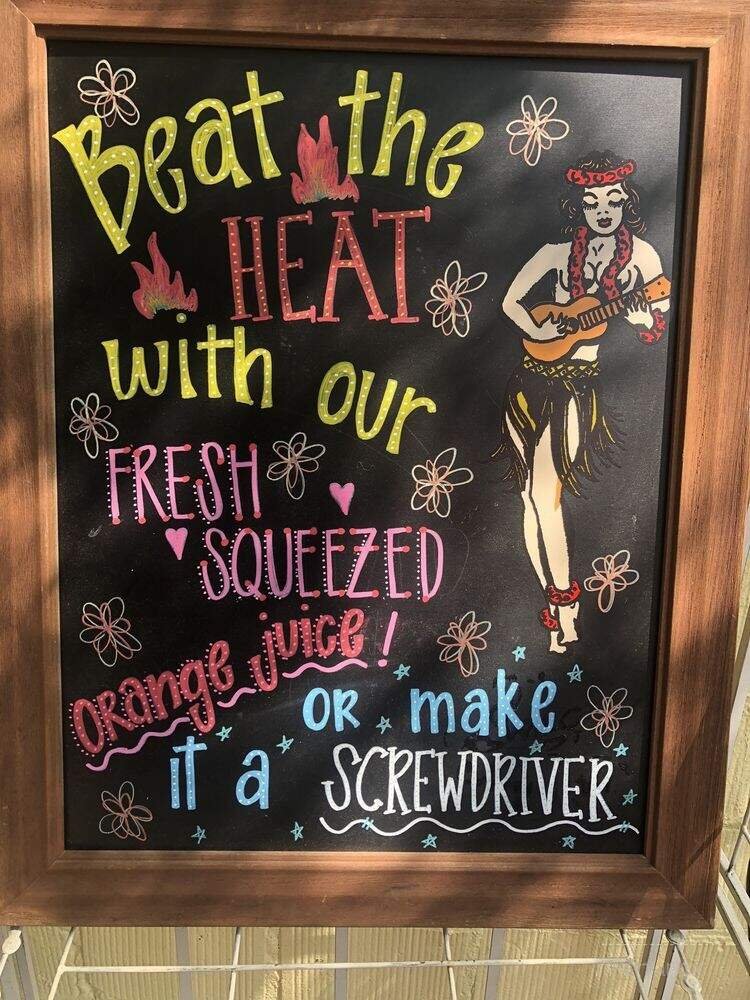 Beat the
HEAT
with our
FRESH
SQUEEZED
ORange juice!
OR make
it a SCREWDRIVER